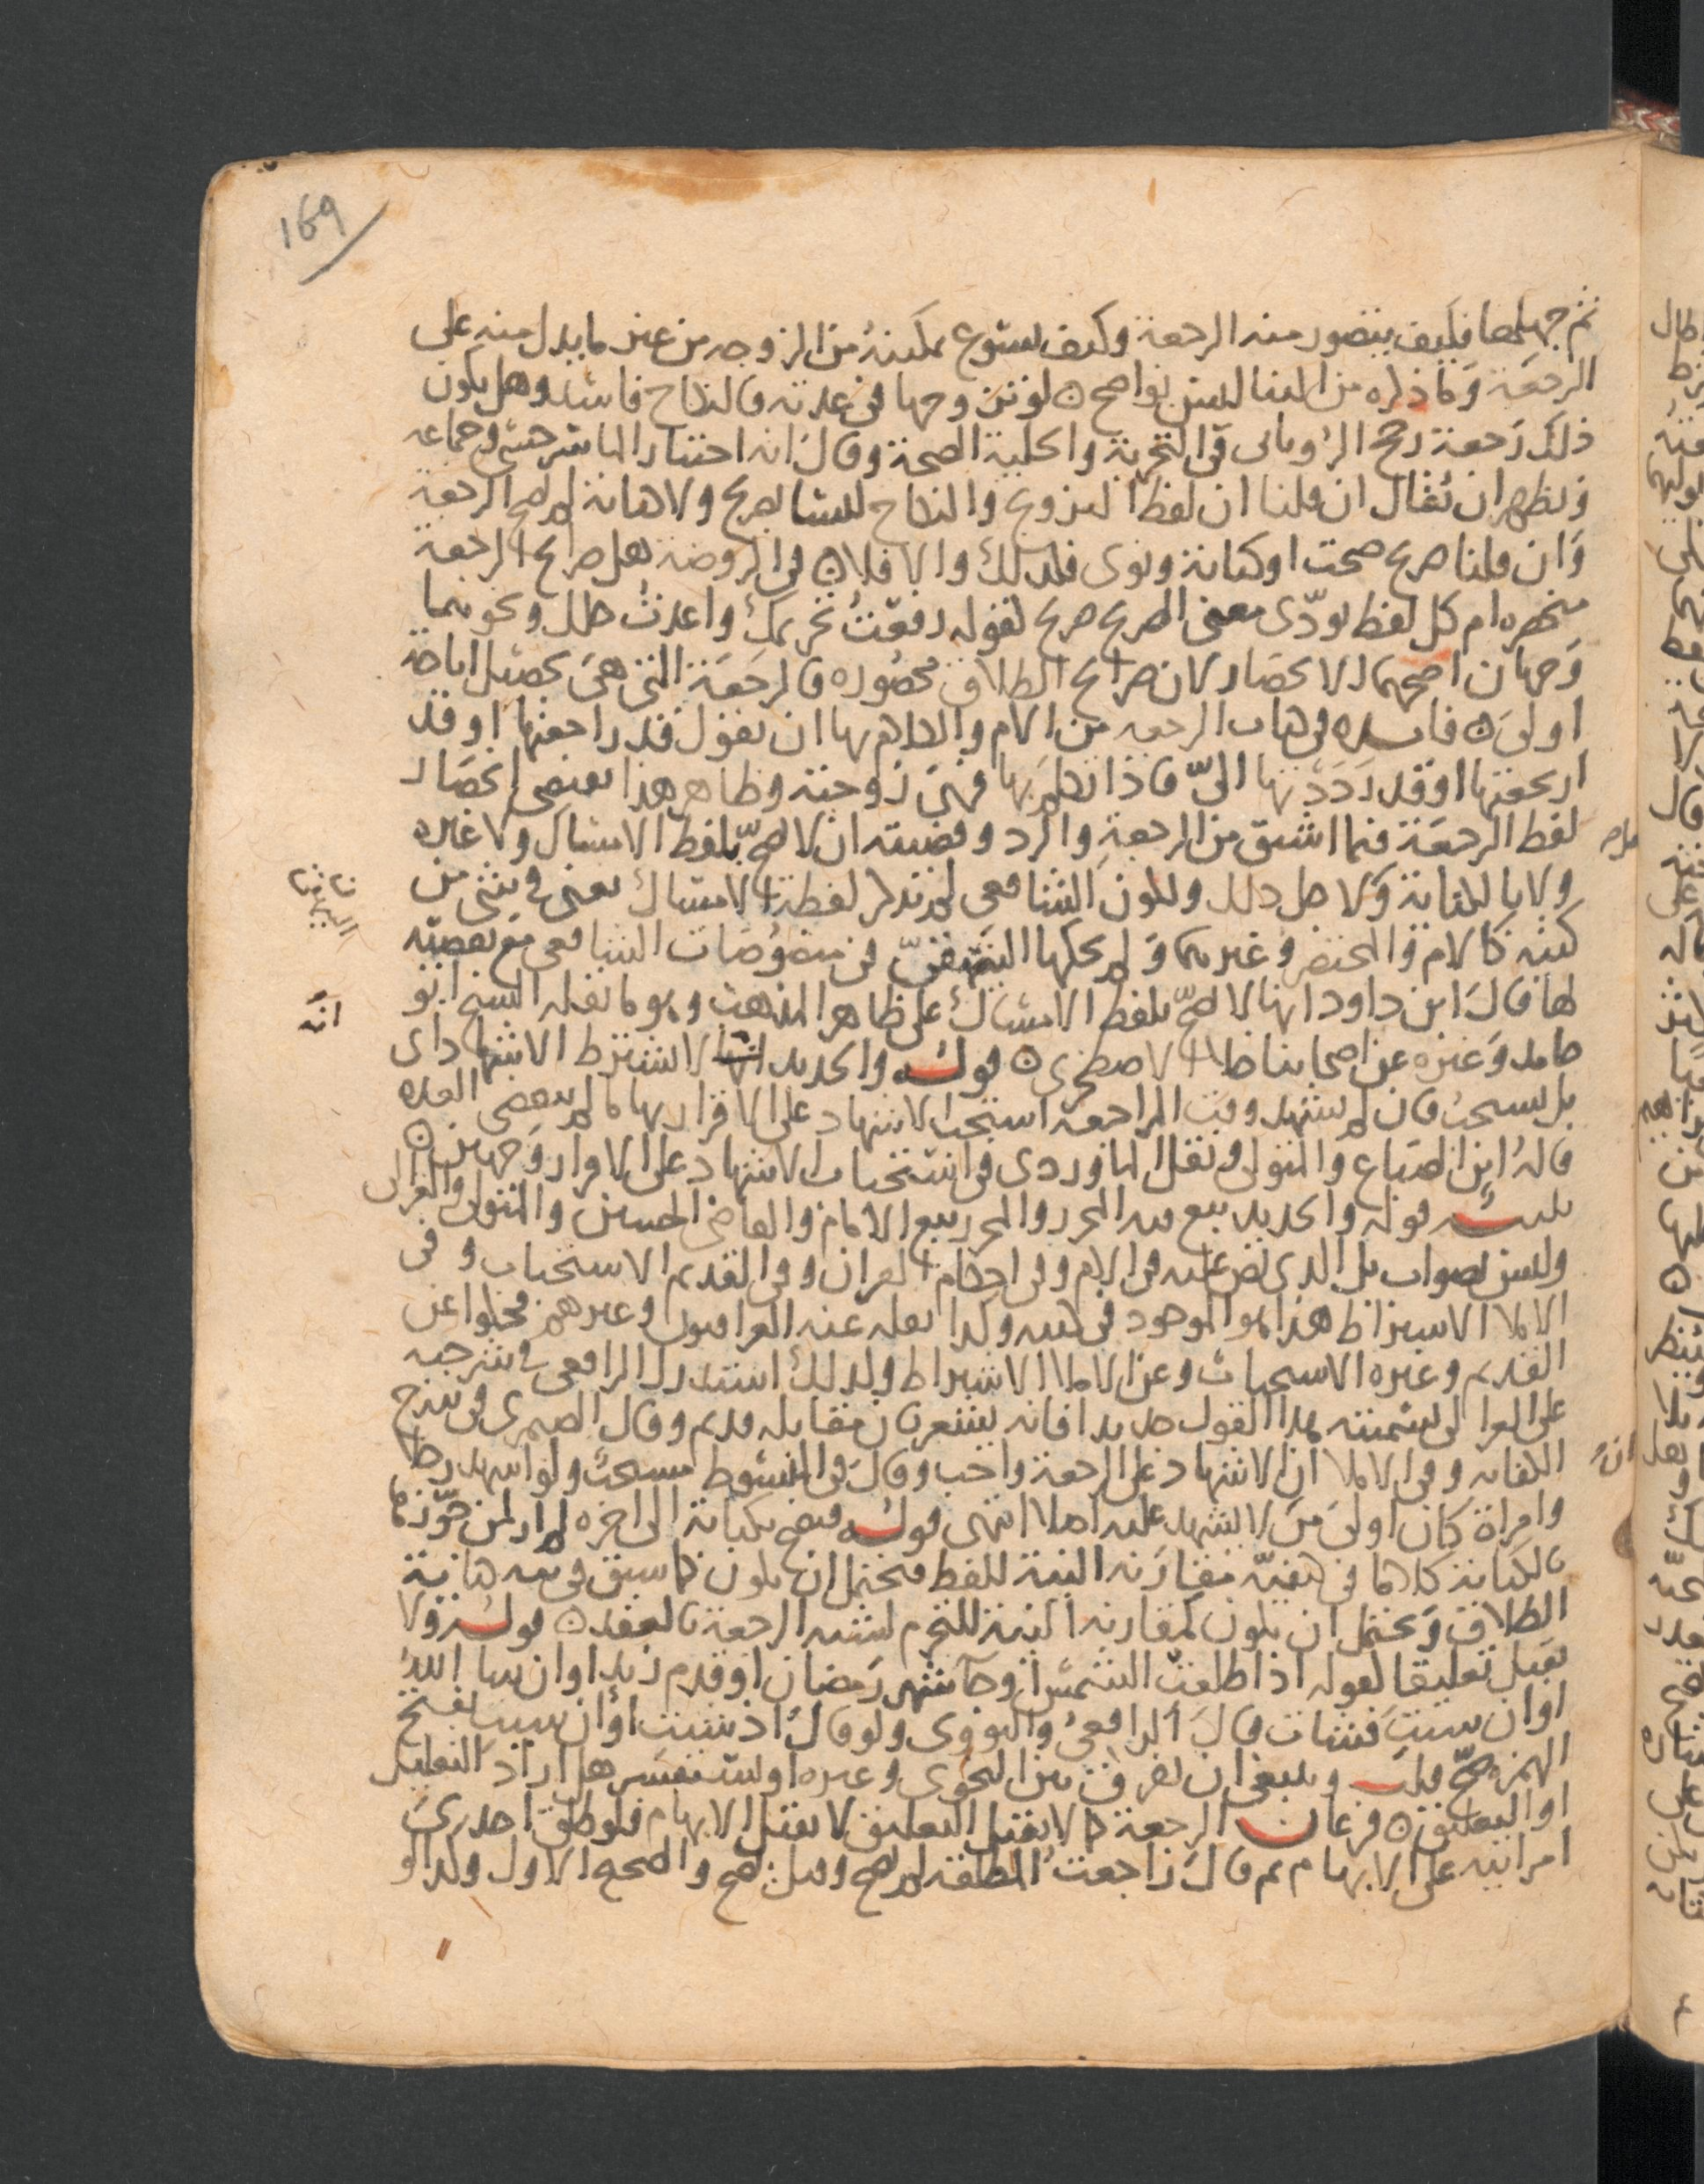 169
ثم جهلها فكيف يتصور منه الرجعة وكيف يسوغ تمكينه من الزوجه من غير ما يدل منه على
الرجعة وما ذكره من البنا ليس بواضح ٥ لو تزوجها في عدته فالنكاح فاسد وهل يكون
ذلك رجعة رجح الروياني في التجربة والحلية الصحة وقال انه اختيار الماسرجسي وجماعه
ويظهر ان يقال ان قلنا ان لفظ التزويج والنكاح ليسا بصريح ولا كناية لم تصح الرجعة
وان قلنا صريح صحت او كناية ونوى فكذلك والا فلا ٥ في الروضة هل صرايح الرجعة
منحصره ام كل لفظ يؤدى معنى الصريح صريح لقوله رفعت تحريمك واعدت حلك ونحوهما
وجهان اصحهما الانحصار لان صرايح الطلاق محصوره فالرجعة التي هي تحصيل اباحة
اولى ٥ فايده في باب الرجعه من الام والكلام بها ان يقول قد راجعتها او قد
ارتجعتها او قد رددتها الىّ فاذا تكلم بها فهي زوجته وظاهر هذا يقتضى انحصار
لفظ الرجعة فيما اشتق من الرجعة والرد وقضيته ان لا تصح بلفظ الامساك ولا غيره
ولا بالكناية ولاجل ذلك ولكون الشافعي لم يذكر لفظة الامساك يعني في شي من
كتبه كالام والمختصر وغيرهما ولم يحكها البيهقي في منصوصات الشافعي مع تقصيه
لها قال ابن داود انها لا تصح بلفظ الامساك على ظاهر المذهب وهو ما نقله الشيخ ابو
انه
حامد وغيره عن اصحابنا خلا الاصطخرى ٥ قوله والجديد لا يشترط الاشهاد اى
بل يستحب فان لم يشهد وقت المراجعه استحب الاشهاد على الاقرار بها ما لم تنقضي العده
قاله ابن الصباغ والمتولي ونقل الماوردى في استحباب الاشهاد على الاقرار وجهين ٥
قلت قوله والجديد تبع فيه المحرر والمحرر تبع الامام والقاضي الحسين والمتولي والغزالى
وليس بصواب بل الذى نص عليه في الام وفي احكام القران وفي القديم الاستحباب وفي
الاملا الاشتراط هذا هو الموجود في كتبه وكذا نقله عنه العراقيون وغيرهم فحكوا عن
القديم وغيره الاستحباب وعن الاملا الاشتراط ولذلك استدرك الرافعي في شرحيه
على الغزالى تسميته هذا القول جديدا فانه يشعر بان مقابله قديم وقال الصيمرى في شرح
الكفايه وفي الاملا ان الاشهاد على الرجعة واجب وقال في المبسوط مستحب ولو اشهد رجلا
وامراة كان اولى من لا يشهد عليه اصلا انتهى قوله فتصح بكناية الى اخره لم ار لمن جوزها
بالكناية كلاما في كيفية مقارنة النية للفظ فيحتمل ان يكون كما سبق في نيه كناية
الطلاق ويحتمل ان يكون كمقارنه النية للتحرم لشبه الرجعة بالعقد ٥ قوله ولا
تقبل تعليقا لقوله اذا طلعت الشمس او جا شهر رمضان او قدم زيد او ان شا الله
او ان شيت فشات قال الرافعي والنووى ولو قال اذ شيت او ان شيت بفتح
الهمزه صح قلت وينبغي ان يفرق بين النحوى وغيره او يستفسر هل اراد التعليل
او التعليق ٥ فرعان الرجعة كما لا تقبل التعليق لا تقبل الابهام فلو طلق احدى
امراتيه على الابهام ثم قال راجعت المطلقه لم تصح وقيل تصح والصحيح الاول وكذا لو